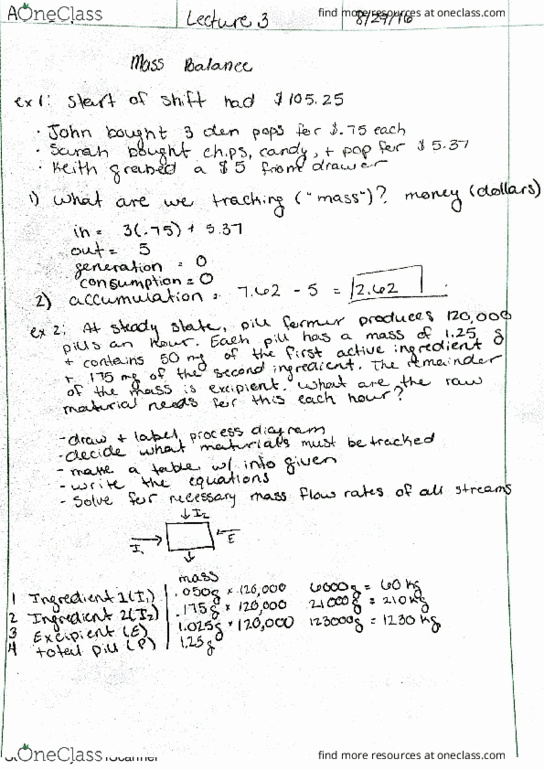 OneClass
Lecture 3
find more resources at oneclass.com
8/29/16
Mass Balance
ex 1: start of shift had $105.25
· John bought 3 den pops for $.75 each
· Sarah bought chips, candy, + pop for $5.37
· Keith grabed a $5 from drawer
1) What are we tracking ("mass")? money (dollars)
in = 3(.75) + 5.37
out = 5
generation = 0
consumption = 0
2) accumulation = 7.62 - 5 = 2.62
ex 2: At steady state, pill former produces 120,000
pills an hour. Each pill has a mass of 1.25 g
+ contains 50 mg of the first active ingredient
+ 175 mg of the second ingredient. The remainder
of the mass is excipient. What are the raw
material needs for this each hour?
- draw + label process diagram
- decide what materials must be tracked
- make a table w/ info given
- write the equations
- Solve for necessary mass flow rates of all streams
I2
I1 E
mass
1 Ingredient 1 (I1) .050g * 120,000 6000g = 60 kg
2 Ingredient 2 (I2) .175g * 120,000 21000g = 210 kg
3 Excipient (E) 1.025g * 120,000 123000g = 1230 kg
4 total pill (P) 1.25g
OneClass
find more resources at oneclass.com